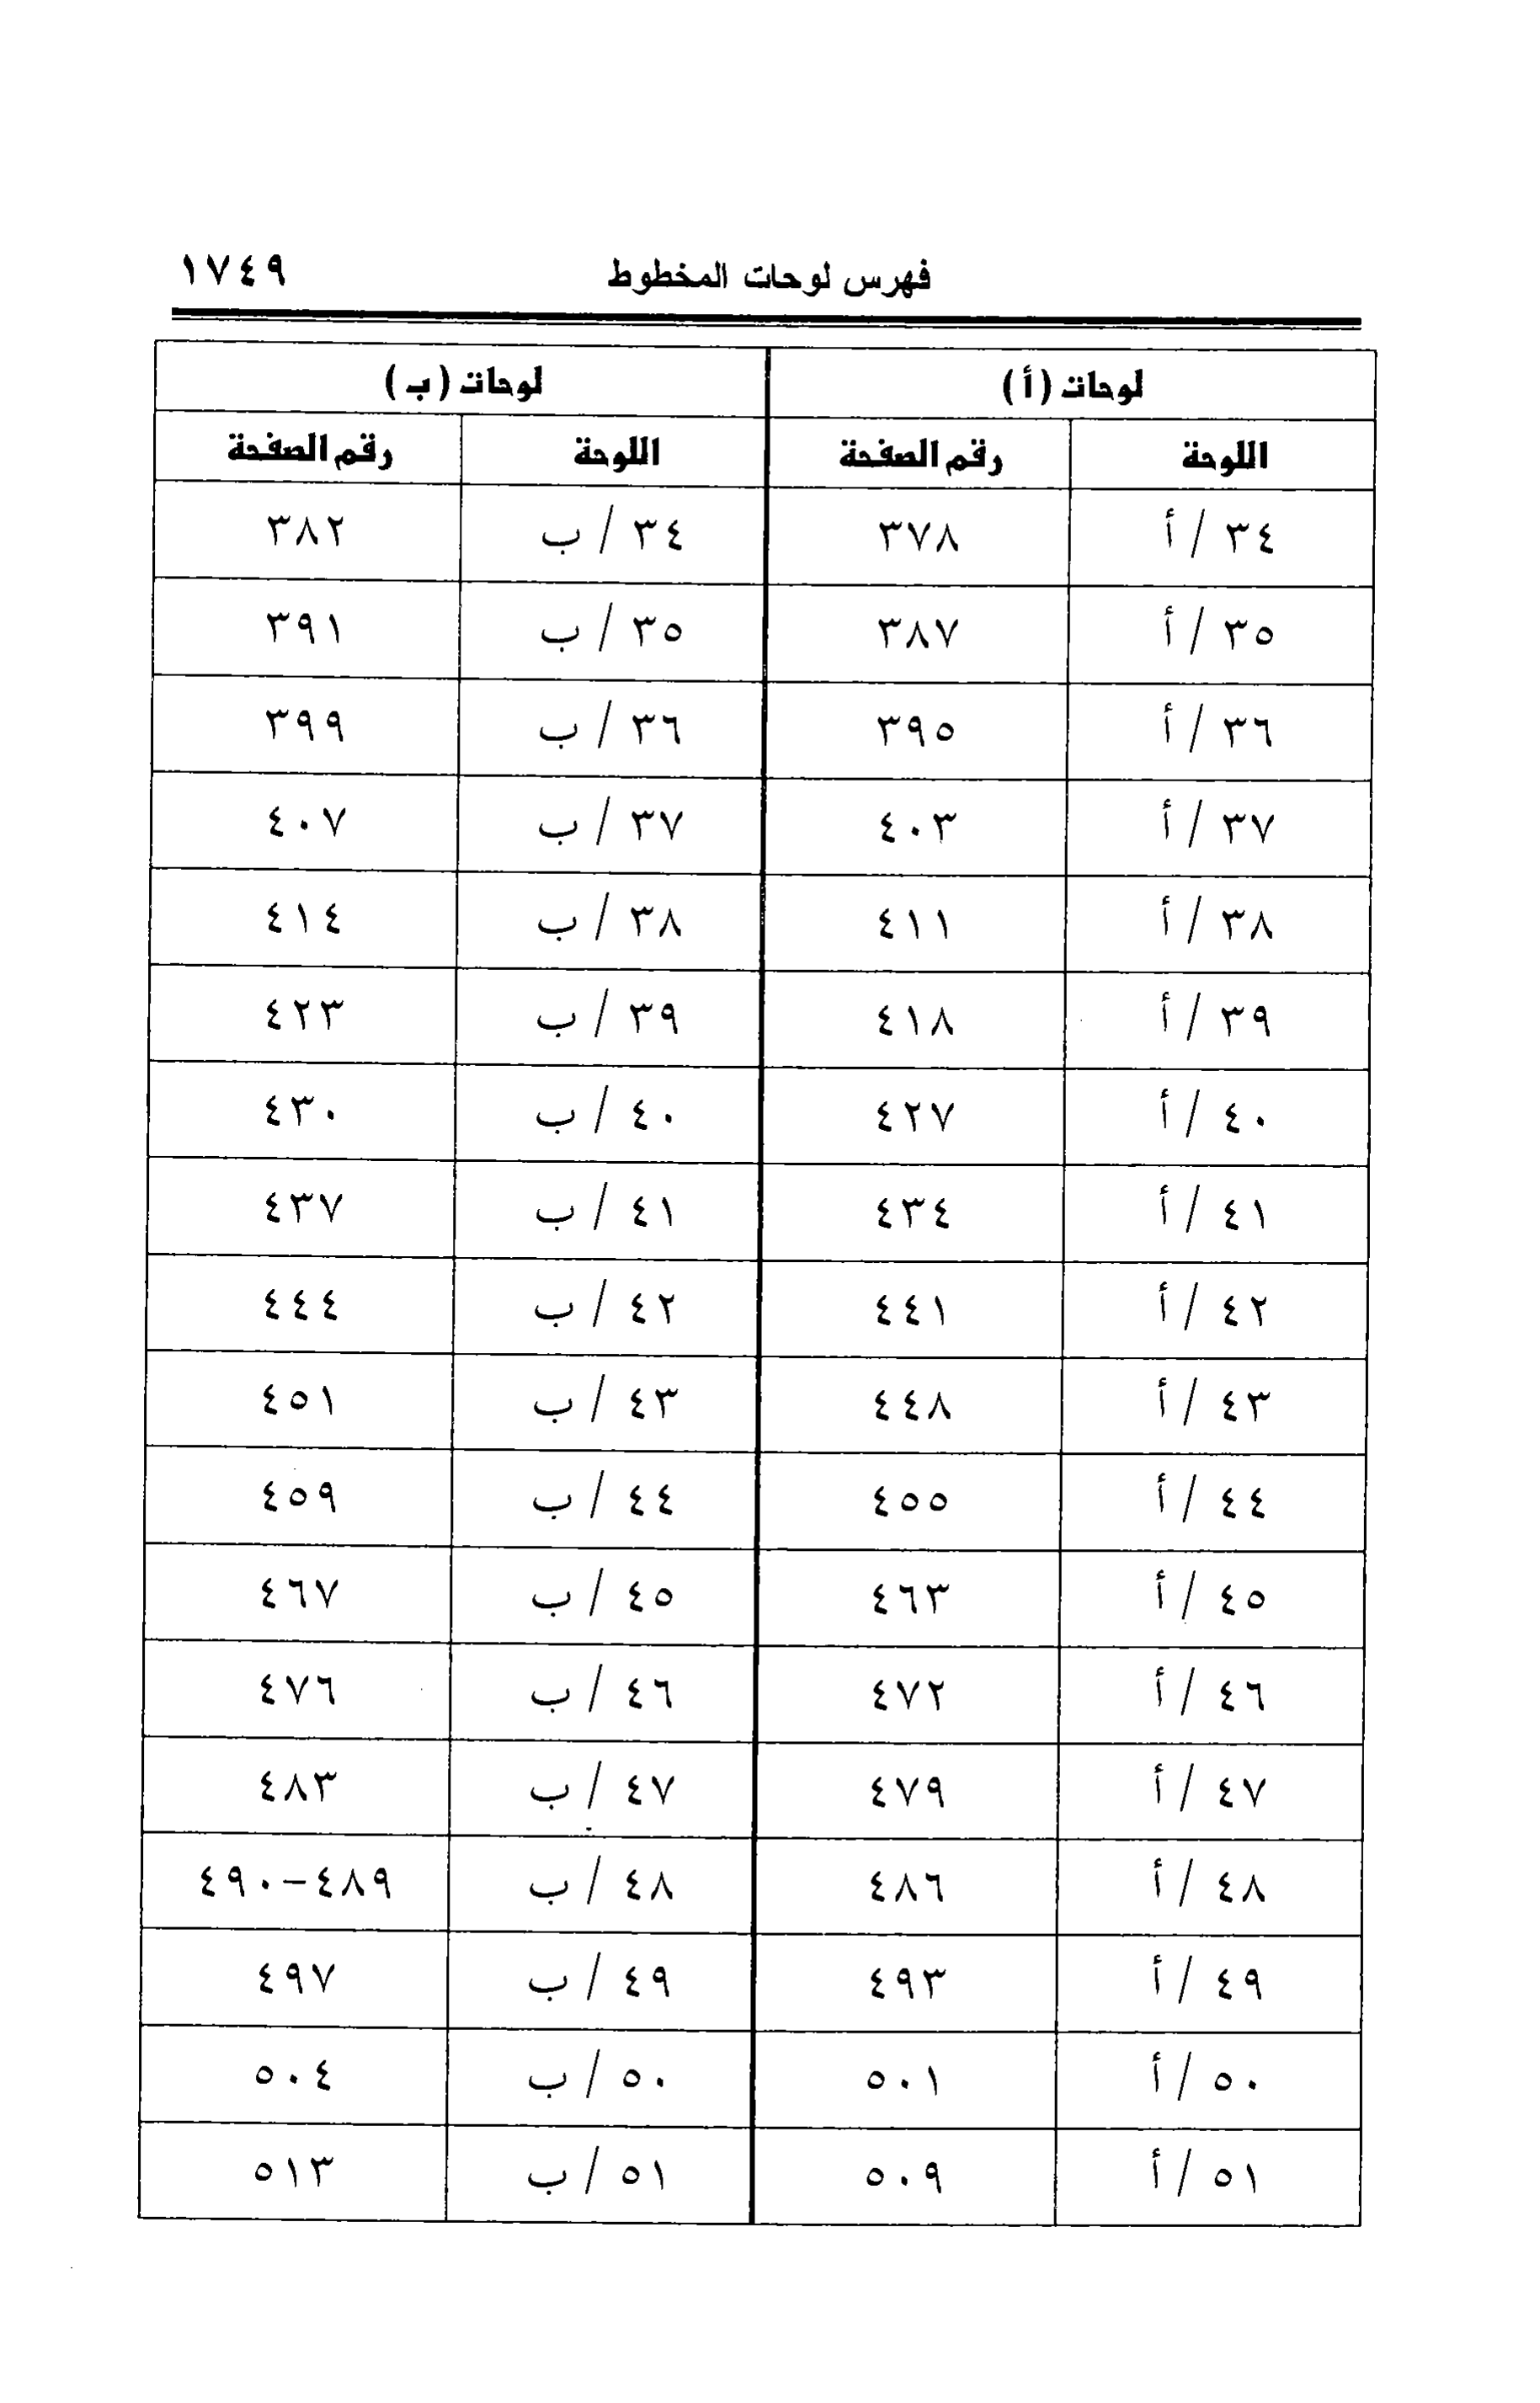 فهرس لوحات المخطوط ١٧٤٩
لوحات (أ) لوحات (ب)
اللوحة رقم الصفحة اللوحة رقم الصفحة
٣٤ / أ ٣٧٨ ٣٤ / ب ٣٨٢
٣٥ / أ ٣٨٧ ٣٥ / ب ٣٩١
٣٦ / أ ٣٩٥ ٣٦ / ب ٣٩٩
٣٧ / أ ٤٠٣ ٣٧ / ب ٤٠٧
٣٨ / أ ٤١١ ٣٨ / ب ٤١٤
٣٩ / أ ٤١٨ ٣٩ / ب ٤٢٣
٤٠ / أ ٤٢٧ ٤٠ / ب ٤٣٠
٤١ / أ ٤٣٤ ٤١ / ب ٤٣٧
٤٢ / أ ٤٤١ ٤٢ / ب ٤٤٤
٤٣ / أ ٤٤٨ ٤٣ / ب ٤٥١
٤٤ / أ ٤٥٥ ٤٤ / ب ٤٥٩
٤٥ / أ ٤٦٣ ٤٥ / ب ٤٦٧
٤٦ / أ ٤٧٢ ٤٦ / ب ٤٧٦
٤٧ / أ ٤٧٩ ٤٧ / ب ٤٨٣
٤٨ / أ ٤٨٦ ٤٨ / ب ٤٨٩–٤٩٠
٤٩ / أ ٤٩٣ ٤٩ / ب ٤٩٧
٥٠ / أ ٥٠١ ٥٠ / ب ٥٠٤
٥١ / أ ٥٠٩ ٥١ / ب ٥١٣